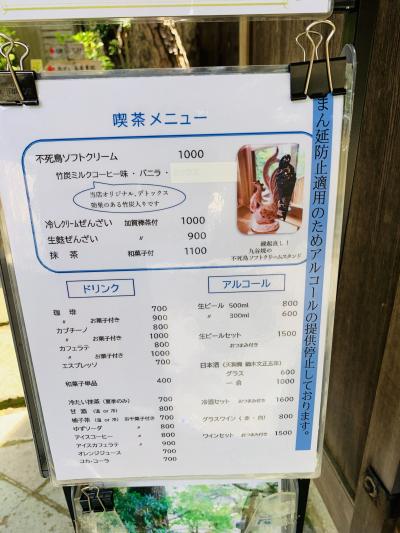 喫茶メニュー
不死鳥ソフトクリーム 1000
竹炭ミルクコーヒー味・バニラ・
当店オリジナル、デトックス
効果のある竹炭入りです
冷しクリームぜんざい 加賀棒茶付 1000
生麩ぜんざい 〃 900
抹茶 和菓子付 1100
縁起直し!
九谷焼の
不死鳥ソフトクリームスタンド
ドリンク
珈琲 700
〃 お菓子付き 900
カプチーノ 800
〃 お菓子付き 1000
カフェラテ 800
〃 お菓子付き 1000
エスプレッソ 700
和菓子単品 400
冷たい抹茶(夏季のみ) 700
甘酒(温 or 冷) 800
柚子茶(温 or 冷) 700
ゆずソーダ 〃 800
アイスコーヒー 〃 800
アイスカフェラテ 〃 900
オレンジジュース 700
コカ・コーラ 700
アルコール
生ビール 500ml 800
〃 300ml 600
生ビールセット 1500
おつまみ付き
日本酒
グラス 600
一合 1000
冷酒セット おつまみ付き 1600
グラスワイン(赤・白) 800
ワインセット おつまみ付き 1500
まん延防止適用のためアルコールの提供停止しております。